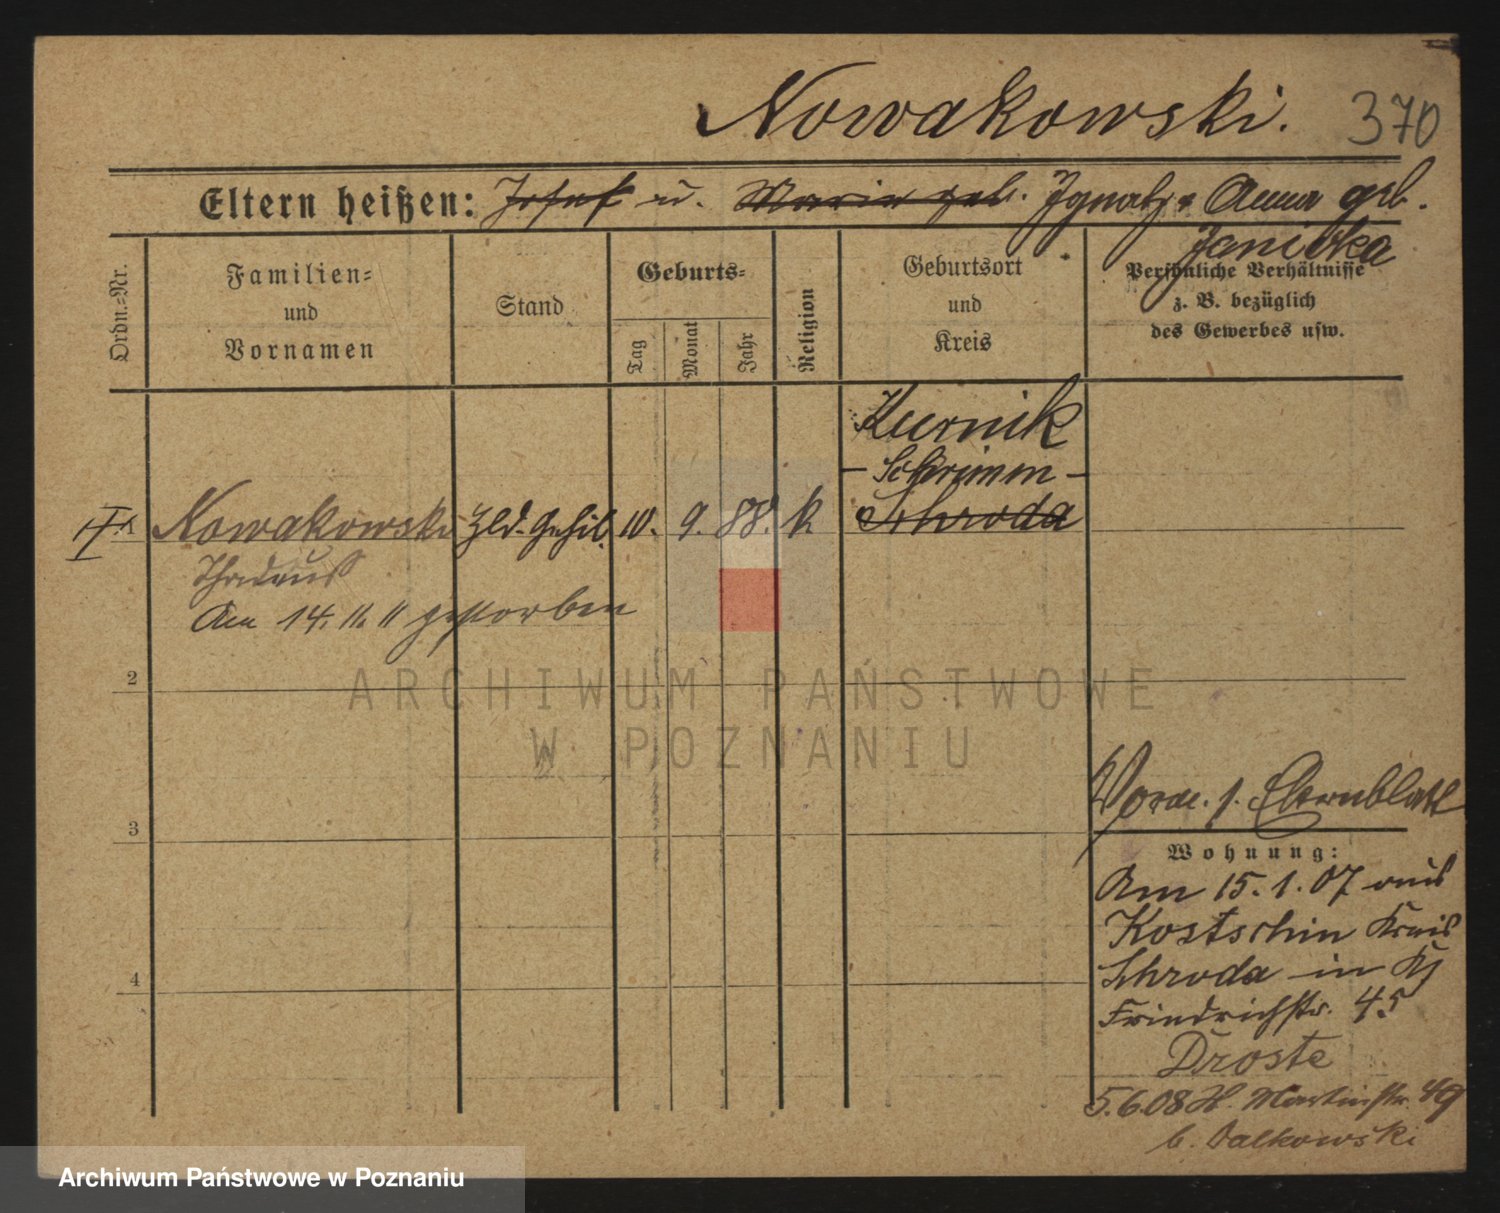 Nowakowski. 370
Eltern heißen: Josef u. Maria geb. Ignatz u Anna geb.
Janicka
Ordn.=Nr.
Familien=
und
Vornamen
Stand
Geburts=
Tag
Monat
Jahr
Religion
Geburtsort
und
Kreis
Persönliche Verhältnisse
z. B. bezüglich
des Gewerbes usw.
Kurnik
- Schrimm -
Schroda
1 Nowakowski Hld. Gehil. 10. 9. 88. k
Thadeus
Am 14. 11. 11 gestorben
2
3
4
Elternblatt
Wohnung:
Am 15. 1. 07 aus
Kostschin Kreis
Schroda in
Friedrichstr. 45
Droste
5.6.08 H. Martinstr. 49
b. Dalkowski
ARCHIWUM PAŃSTWOWE
W POZNANIU
Archiwum Państwowe w Poznaniu